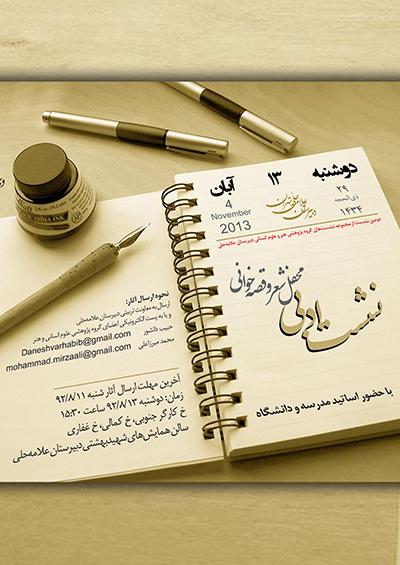 دوشنبه ۱۳ آبان
4
November
2013
۲۹
ذی الحجه
۱۴۳۴
دبیرستان علامه حلی تهران
دومین نشست از مجموعه نشست‌های گروه پژوهشی هنر و علوم انسانی دبیرستان علامه‌حلی
نشست ادبی
محفل شعر و قصه خوانی
با حضور اساتید مدرسه و دانشگاه
نحوه ارسال آثار:
ارسال به معاونت تربیتی دبیرستان علامه‌حلی
و یا به پست الکترونیکی اعضای گروه پژوهشی علوم انسانی و هنر
حبیب دانشور
Daneshvarhabib@gmail.com
محمد میرزاعلی
mohammad.mirzaali@gmail.com
آخرین مهلت ارسال آثار شنبه ۹۲/۸/۱۱
زمان: دوشنبه ۹۲/۸/۱۳ ساعت ۱۵:۳۰
خ کارگر جنوبی، خ کمالی، خ غفاری
سالن همایش‌های شهیدبهشتی دبیرستان علامه‌حلی
INDIA INK